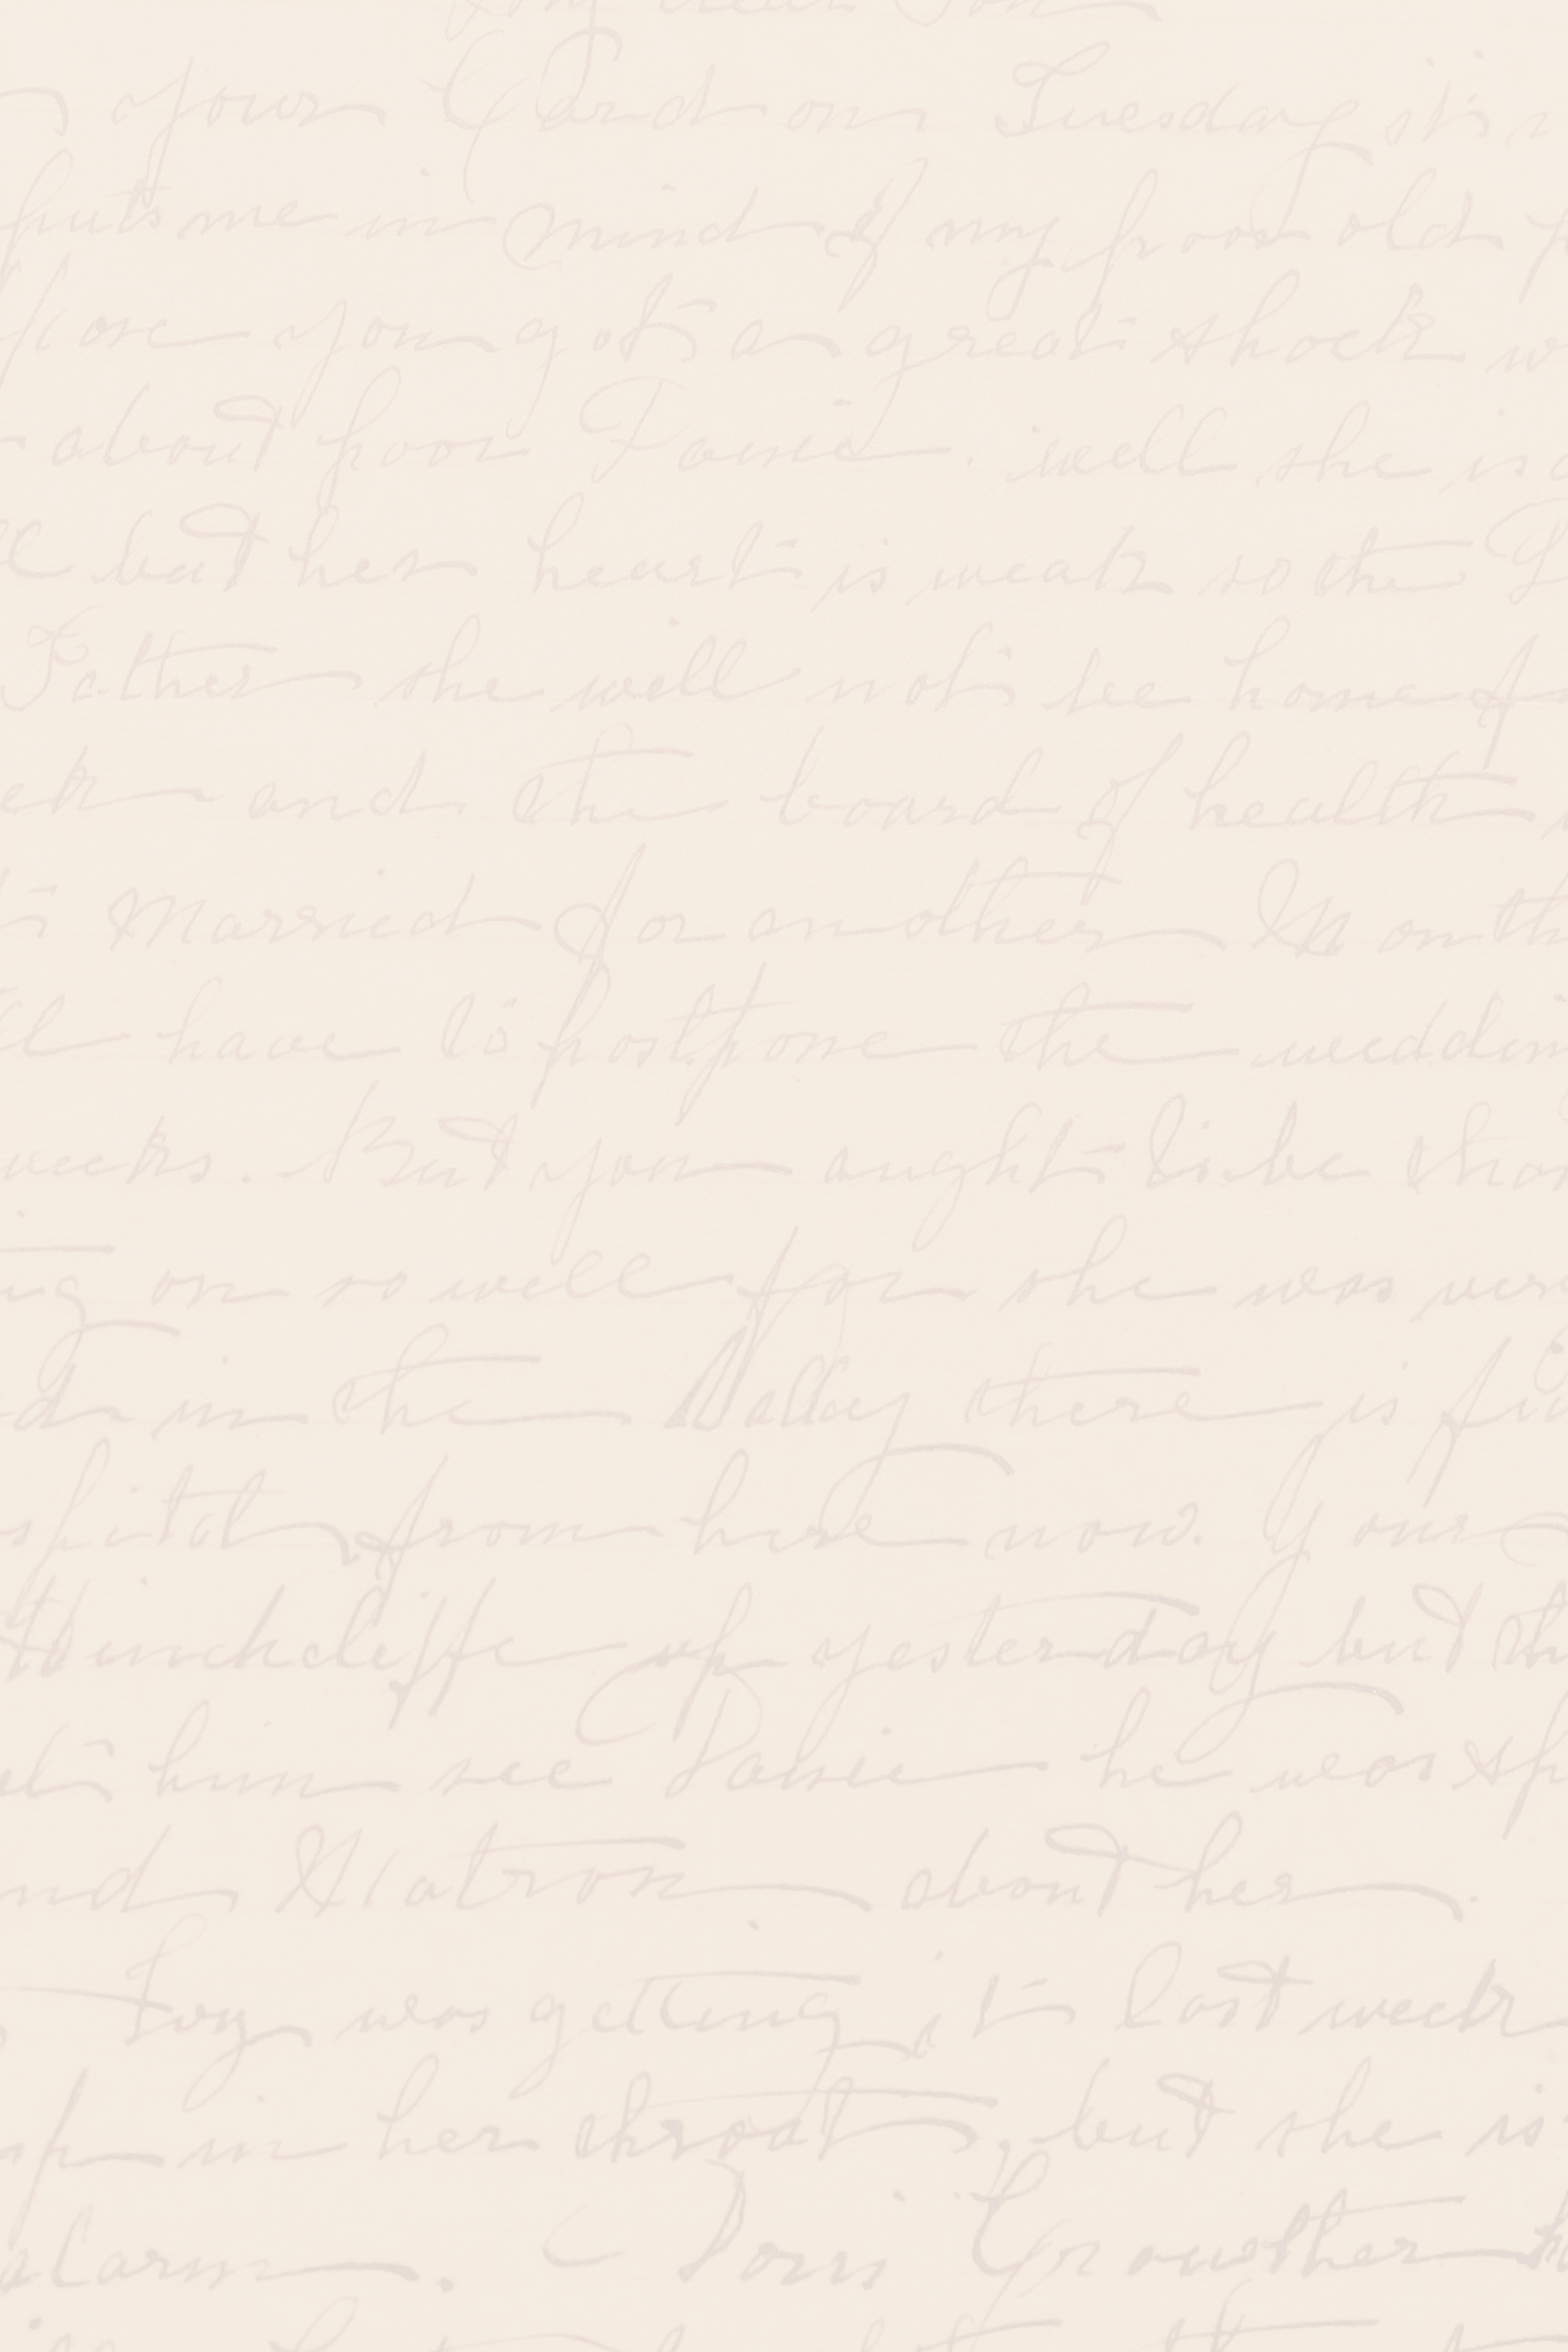 My dear Son
your Card on Tuesday it's a
puts me in mind of my poor old
you got a great shock
about poor Janie. well she is
but her heart is weak so the
Father she will not be home
and the board of health
Married for another Month
have to postpone the
weeks. But you aught to be
on so well for she was
in the Valley there is
from here now. Your
Hinchcliffe up yesterday but
him see Janie he was
and Matron about her.
Ivy was getting it last week
in her throat, but she is
alarm. Doris Crowther